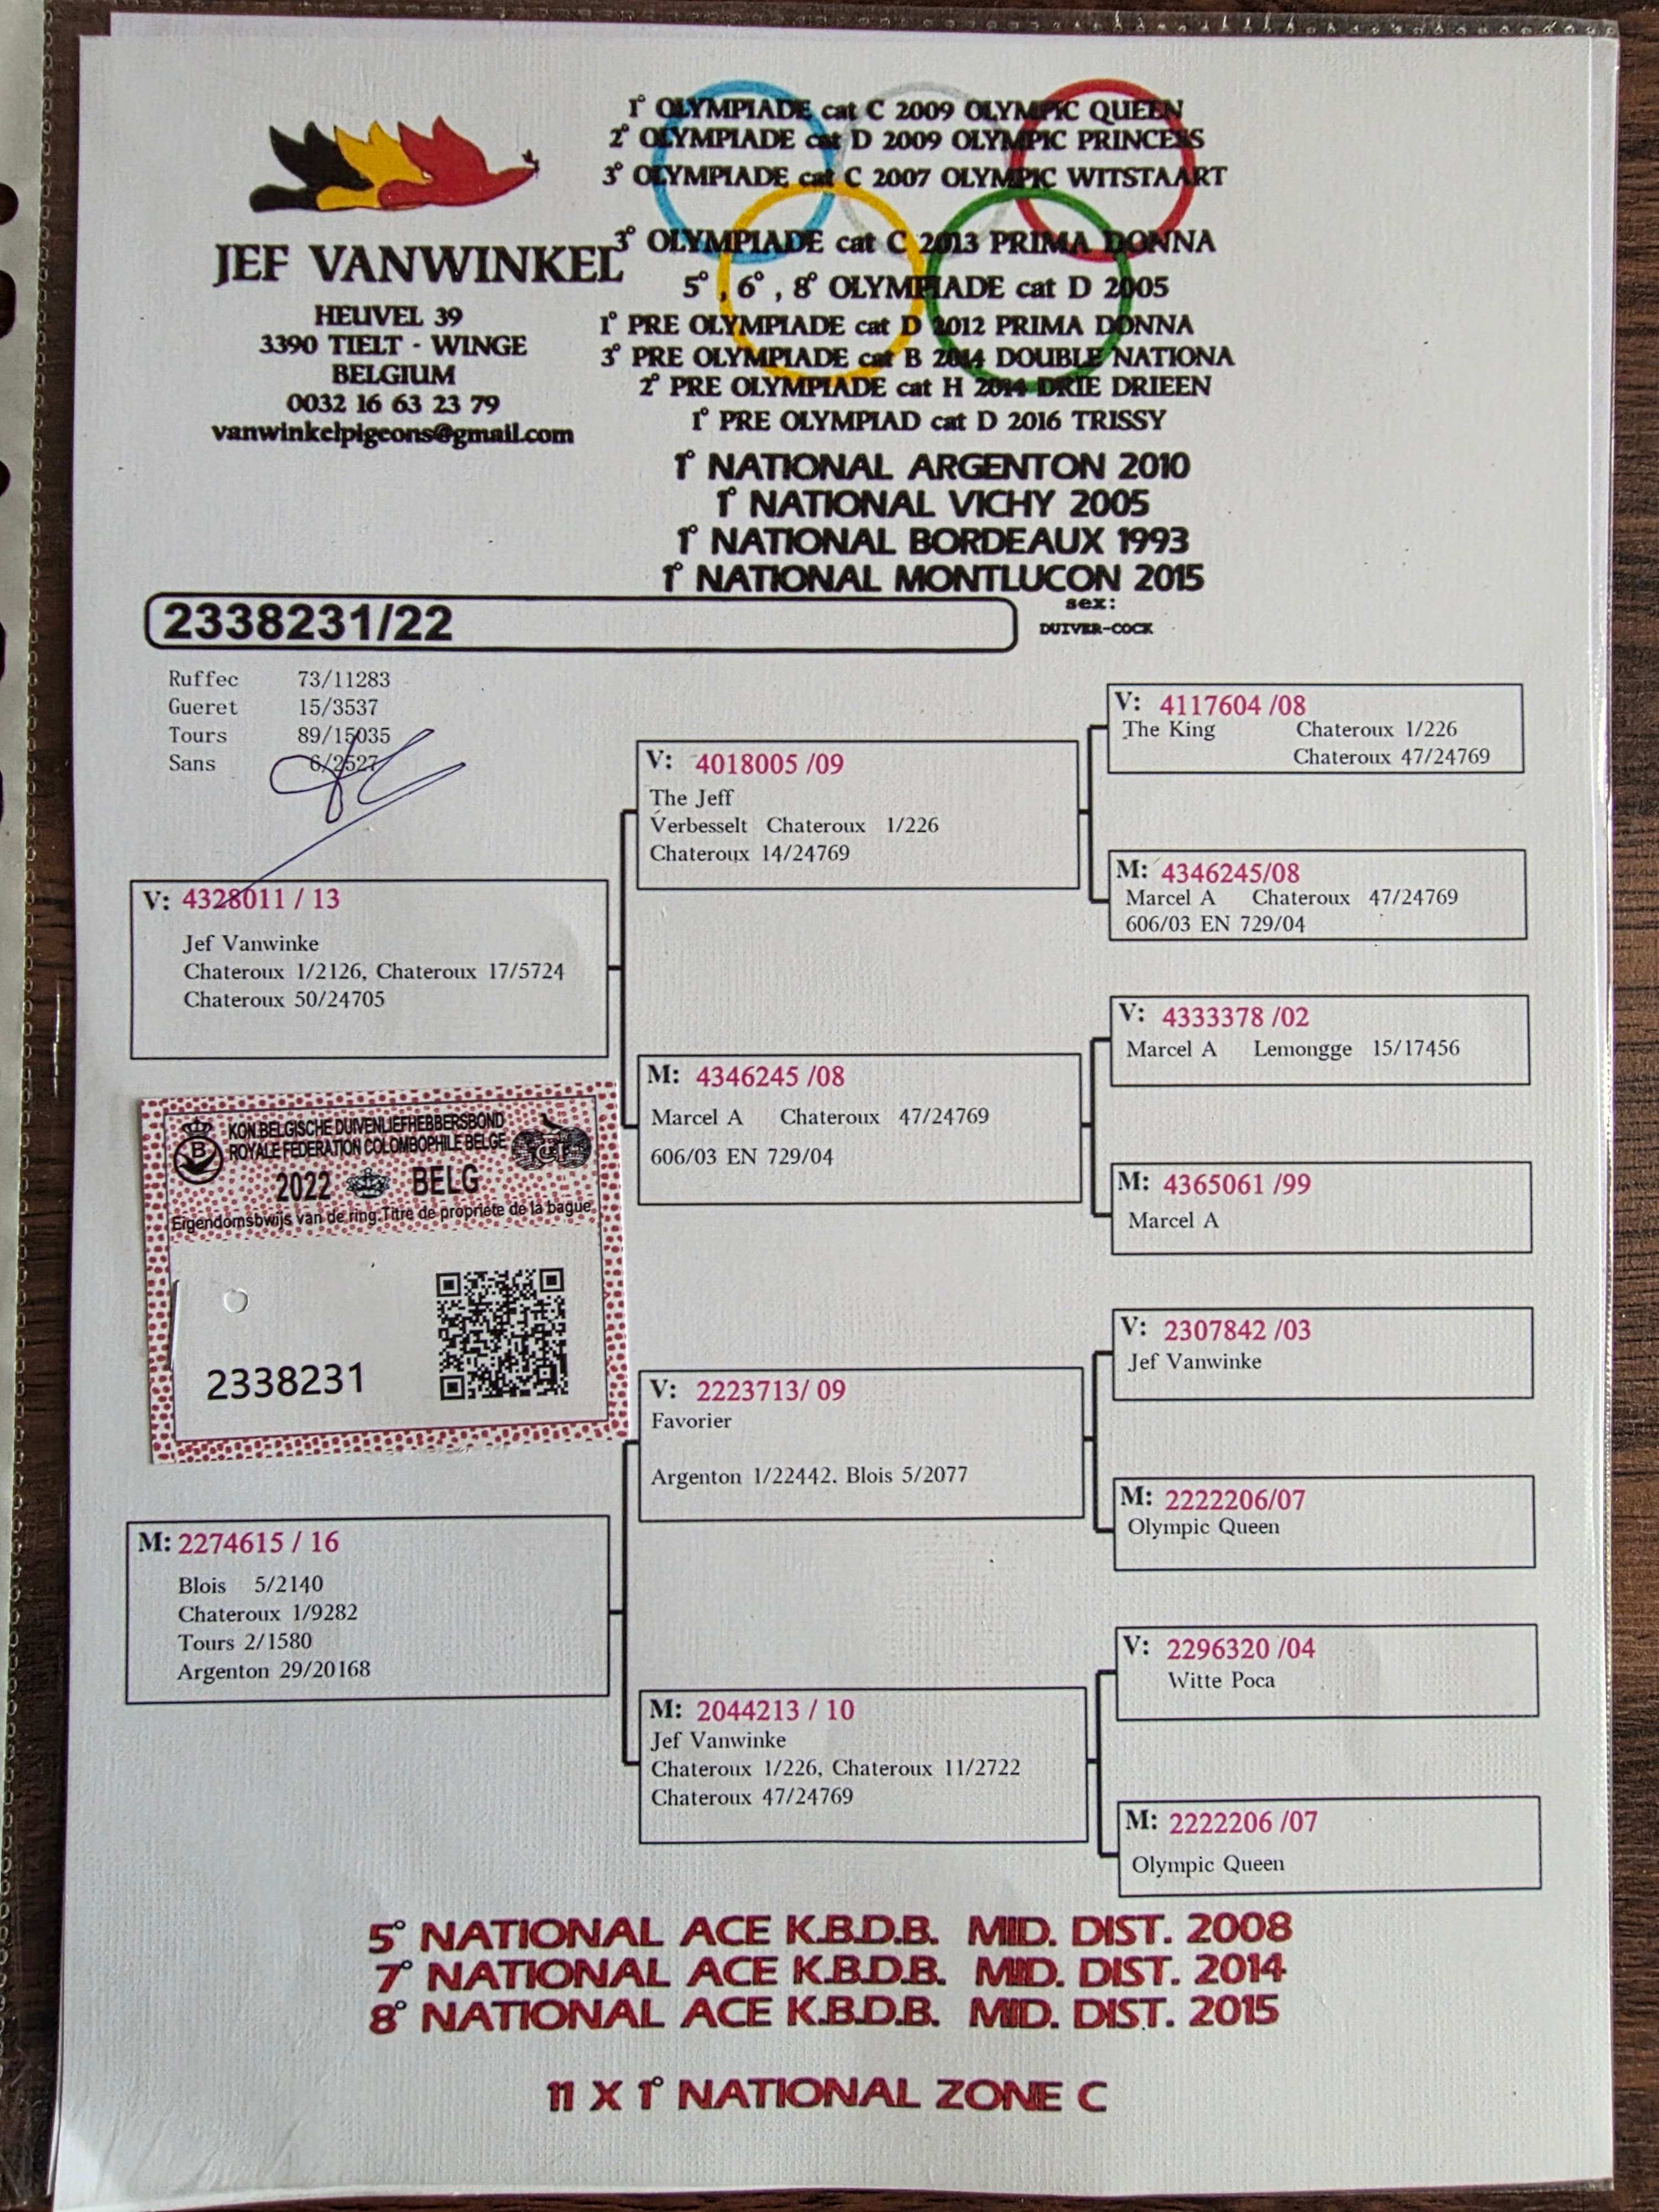 1° OLYMPIADE cat C 2009 OLYMPIC QUEEN
2° OLYMPIADE cat D 2009 OLYMPIC PRINCESS
3° OLYMPIADE cat C 2007 OLYMPIC WITSTAART
3° OLYMPIADE cat C 2013 PRIMA DONNA
5° , 6° , 8° OLYMPIADE cat D 2005
1° PRE OLYMPIADE cat D 2012 PRIMA DONNA
3° PRE OLYMPIADE cat B 2014 DOUBLE NATIONA
2° PRE OLYMPIADE cat H 2014 DRIE DRIEEN
1° PRE OLYMPIAD cat D 2016 TRISSY
1° NATIONAL ARGENTON 2010
1° NATIONAL VICHY 2005
1° NATIONAL BORDEAUX 1993
1° NATIONAL MONTLUCON 2015
JEF VANWINKEL
HEUVEL 39
3390 TIELT - WINGE
BELGIUM
0032 16 63 23 79
vanwinkelpigeons@gmail.com
2338231/22
sex:
DUIVER-COCK
Ruffec 73/11283
Gueret 15/3537
Tours 89/15035
Sans 6/2527
V: 4328011 / 13
Jef Vanwinke
Chateroux 1/2126, Chateroux 17/5724
Chateroux 50/24705
V: 4018005 /09
The Jeff
Verbesselt Chateroux 1/226
Chateroux 14/24769
V: 4117604 /08
The King Chateroux 1/226
Chateroux 47/24769
M: 4346245/08
Marcel A Chateroux 47/24769
606/03 EN 729/04
M: 4346245 /08
Marcel A Chateroux 47/24769
606/03 EN 729/04
V: 4333378 /02
Marcel A Lemongge 15/17456
M: 4365061 /99
Marcel A
KON.BELGISCHE DUIVENLIEFHEBBERSBOND
ROYALE FEDERATION COLOMBOPHILE BELGE
B
2022 BELG
Eigendomsbwijs van de ring.Titre de propriete de la bague
2338231
M: 2274615 / 16
Blois 5/2140
Chateroux 1/9282
Tours 2/1580
Argenton 29/20168
V: 2223713/ 09
Favorier
Argenton 1/22442. Blois 5/2077
V: 2307842 /03
Jef Vanwinke
M: 2222206/07
Olympic Queen
M: 2044213 / 10
Jef Vanwinke
Chateroux 1/226, Chateroux 11/2722
Chateroux 47/24769
V: 2296320 /04
Witte Poca
M: 2222206 /07
Olympic Queen
5° NATIONAL ACE K.B.D.B. MID. DIST. 2008
7° NATIONAL ACE K.B.D.B. MID. DIST. 2014
8° NATIONAL ACE K.B.D.B. MID. DIST. 2015
11 X 1° NATIONAL ZONE C